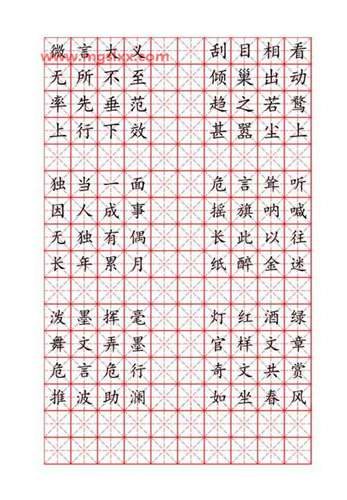 微言大义 刮目相看
www.mgslxx.com
无所不至 倾巢出动
率先垂范 趋之若鹜
上行下效 甚嚣尘上
独当一面 危言耸听
因人成事 摇旗呐喊
无独有偶 长此以往
长年累月 纸醉金迷
泼墨挥毫 灯红酒绿
舞文弄墨 官样文章
危言危行 奇文共赏
推波助澜 如坐春风